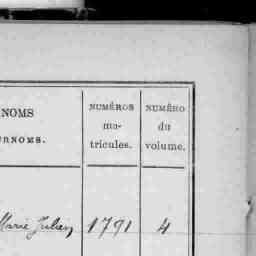 NOMS
NUMÉROS
ma-
tricules.
NUMÉRO
du
volume.
Marie Julien 1791 4